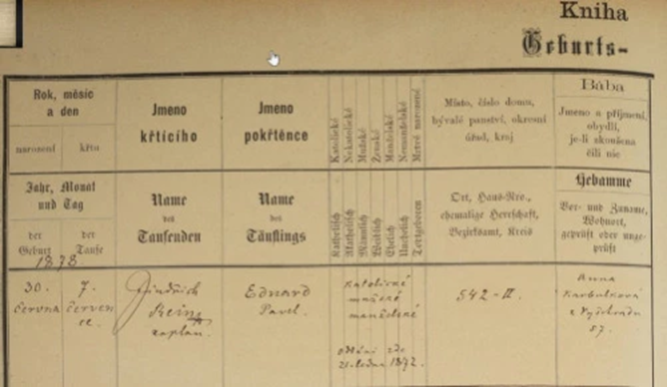 Kniha
Geburts-
Rok, měsíc
a den
narození
křtu
Jméno
křtícího
Jméno
pokřtěnce
Katolické
Nekatolické
Mužské
Ženské
Manželské
Nemanželské
Mrtvě narozené
Místo, číslo domu,
bývalé panství, okresní
úřad, kraj
Bába
Jméno a příjmení,
obydlí,
je-li zkoušena
čili nic
Jahr, Monat
und Tag
der
Geburt
der
Taufe
Name
des
Taufenden
Name
des
Täuflings
Katholisch
Akatholisch
Männlich
Weiblich
Ehelich
Unehelich
Todtgeboren
Ort, Haus-Nro.,
ehemalige Herrschaft,
Bezirksamt, Kreis
Hebamme
Vor- und Zuname,
Wohnort,
geprüft oder unge-
prüft
1878
30.
června
7.
červen
ce.
Jindřich
kaplan.
Eduard
Pavel.
katolické
mužské
manželské
oddáni zde
ledna 1872.
542-II.
Anna
z Vyšehradu
57.